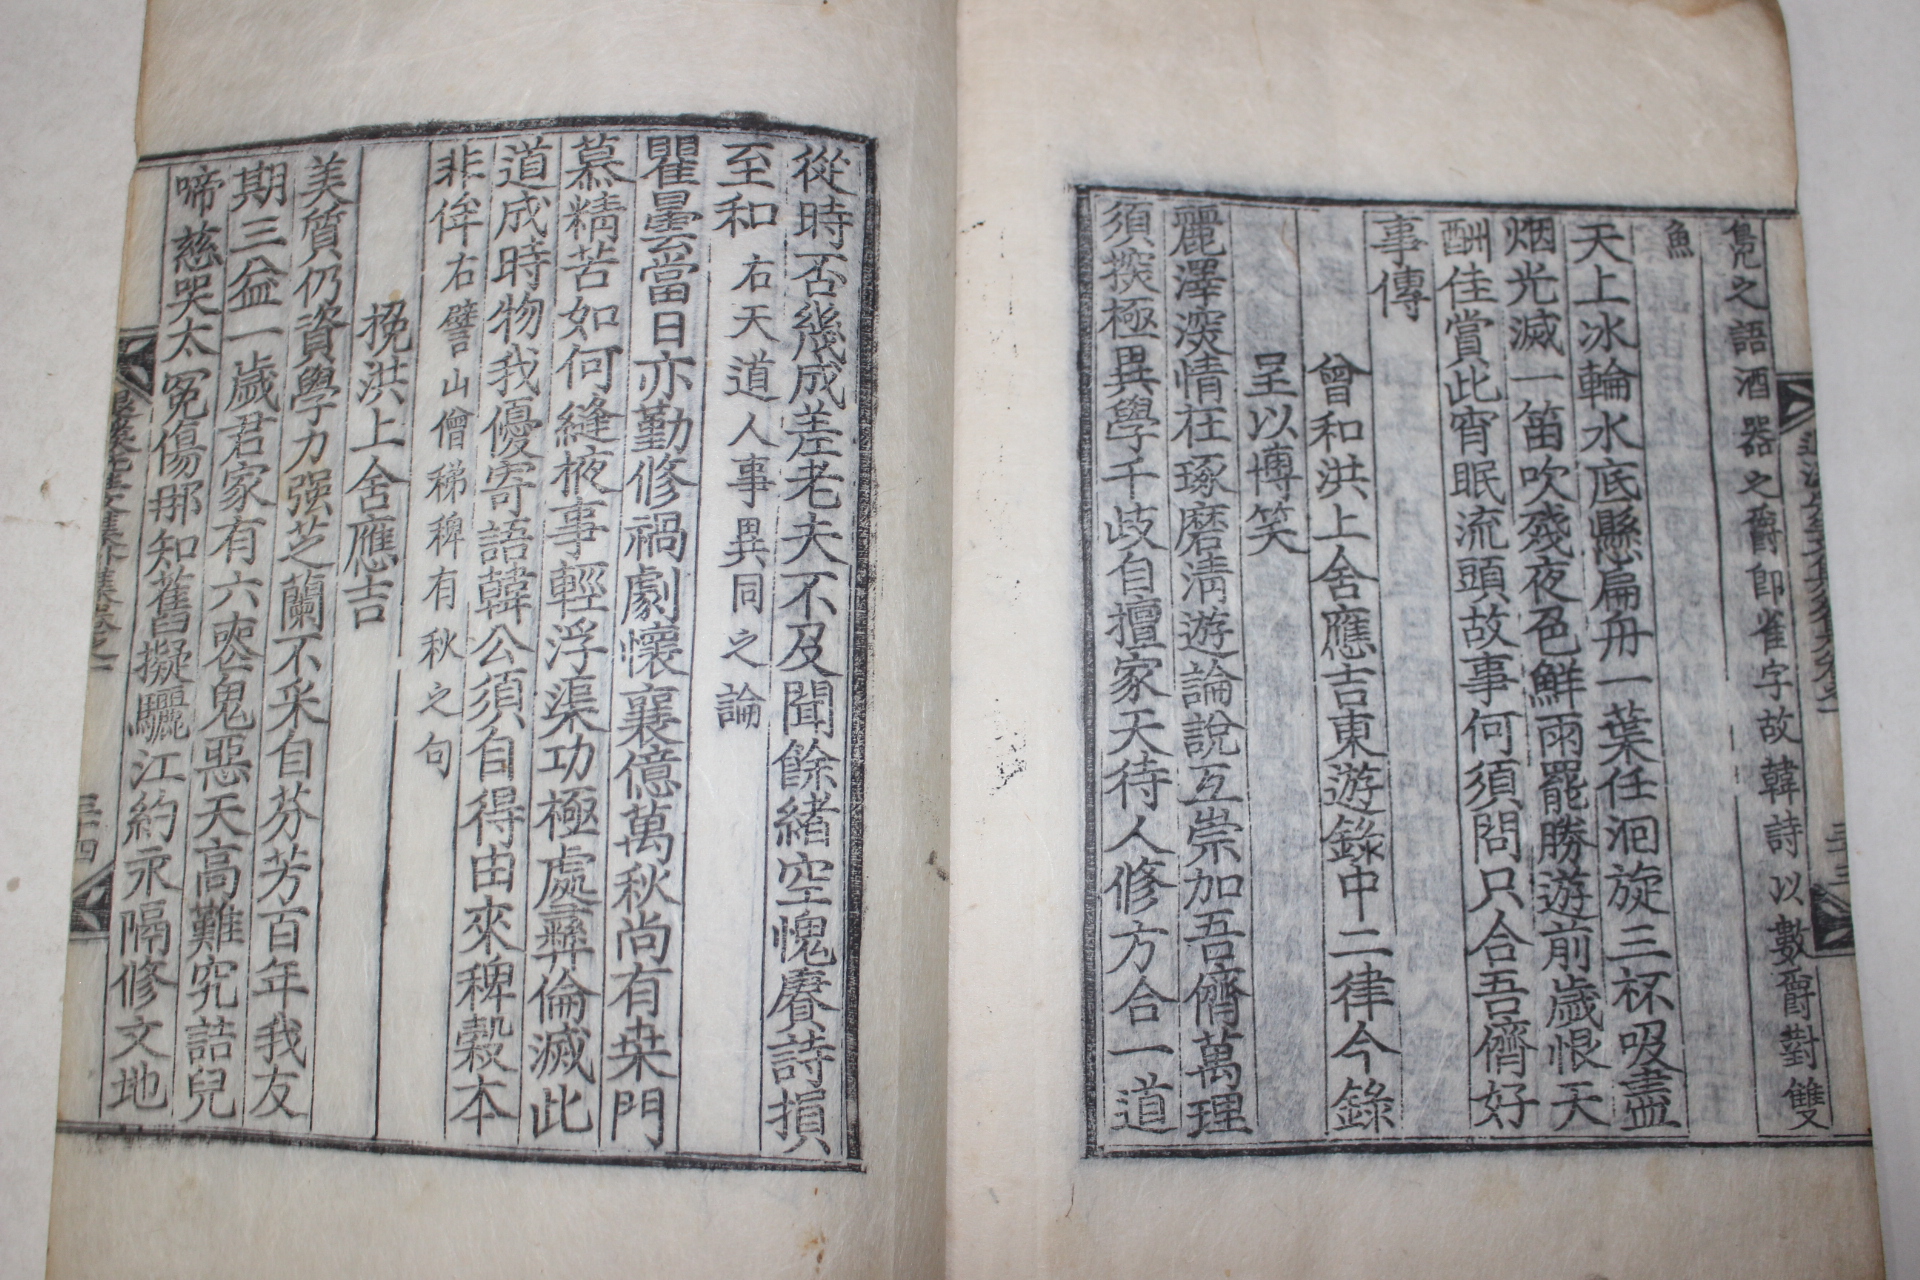 鳧之語酒器之爵卽雀字故韓詩以數爵對雙
魚
天上冰輪水底懸扁舟一葉任洄旋三杯吸盡
烟光滅一笛吹殘夜色鮮雨罷勝遊前歲恨天
酬佳賞此宵眠流頭故事何須問只合吾儕好
事傳
曾和洪上舍應吉東遊錄中二律今錄
呈以博笑
麗澤深情在琢磨淸遊論說互崇加吾儕萬理
須探極異學千歧自擅家天待人修方合一道
從時否幾成差老夫不及聞餘緖空愧賡詩損
至和 右天道人事異同之論
瞿曇當日亦勤修禍劇懷襄億萬秋尚有桒門
慕精苦如何縫掖事輕浮渠功極處彛倫滅此
道成時物我優寄語韓公須自得由來稗穀本
非侔 右譬山僧稊稗有秋之句
挽洪上舍應吉
美質仍資學力强芝蘭不采自芬芳百年我友
期三益一歲君家有六喪鬼惡天高難究詰兒
啼慈哭太冤傷那知舊擬驪江約永隔修文地